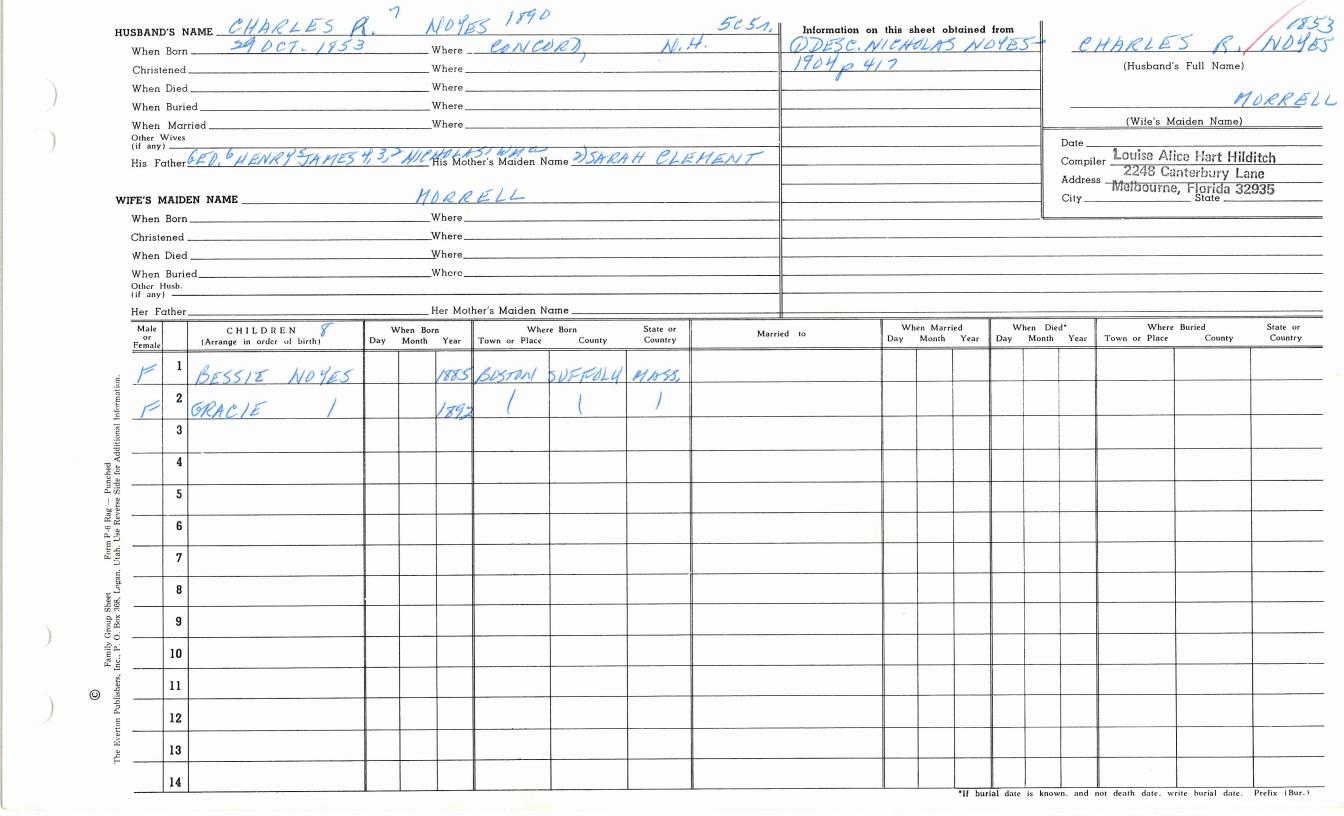 HUSBAND'S NAME CHARLES R. 7 NOYES 1890 5c5s.
When Born 29 OCT. 1853 Where CONCORD, N.H.
Christened Where
When Died Where
When Buried Where
When Married Where
Other Wives
(if any)
His Father GEO. 6 HENRY 5 JAMES 4,3,2 NICHOLAS 1 His Mother's Maiden Name 2) SARAH CLEMENT
WIFE'S MAIDEN NAME MORRELL
When Born Where
Christened Where
When Died Where
When Buried Where
Other Husb.
(if any)
Her Father Her Mother's Maiden Name
Information on this sheet obtained from
① DESC. NICHOLAS NOYES-
1904 p 417
1853
CHARLES R. NOYES
(Husband's Full Name)
MORRELL
(Wife's Maiden Name)
Date
Compiler Louise Alice Hart Hilditch
Address 2248 Canterbury Lane
Melbourne, Florida 32935
City State
Male or Female CHILDREN 8 (Arrange in order of birth) When Born Day Month Year Where Born Town or Place County State or Country Married to When Married Day Month Year When Died* Day Month Year Where Buried Town or Place County State or Country
F 1 BESSIE NOYES 1885 BOSTON SUFFOLK MASS.
F 2 GRACIE / 1892 / / /
3
4
5
6
7
8
9
10
11
12
13
14
*If burial date is known, and not death date, write burial date. Prefix (Bur.)
© Family Group Sheet Form P-6 Rag — Punched
The Everton Publishers, Inc., P. O. Box 368, Logan, Utah. Use Reverse Side for Additional Information.